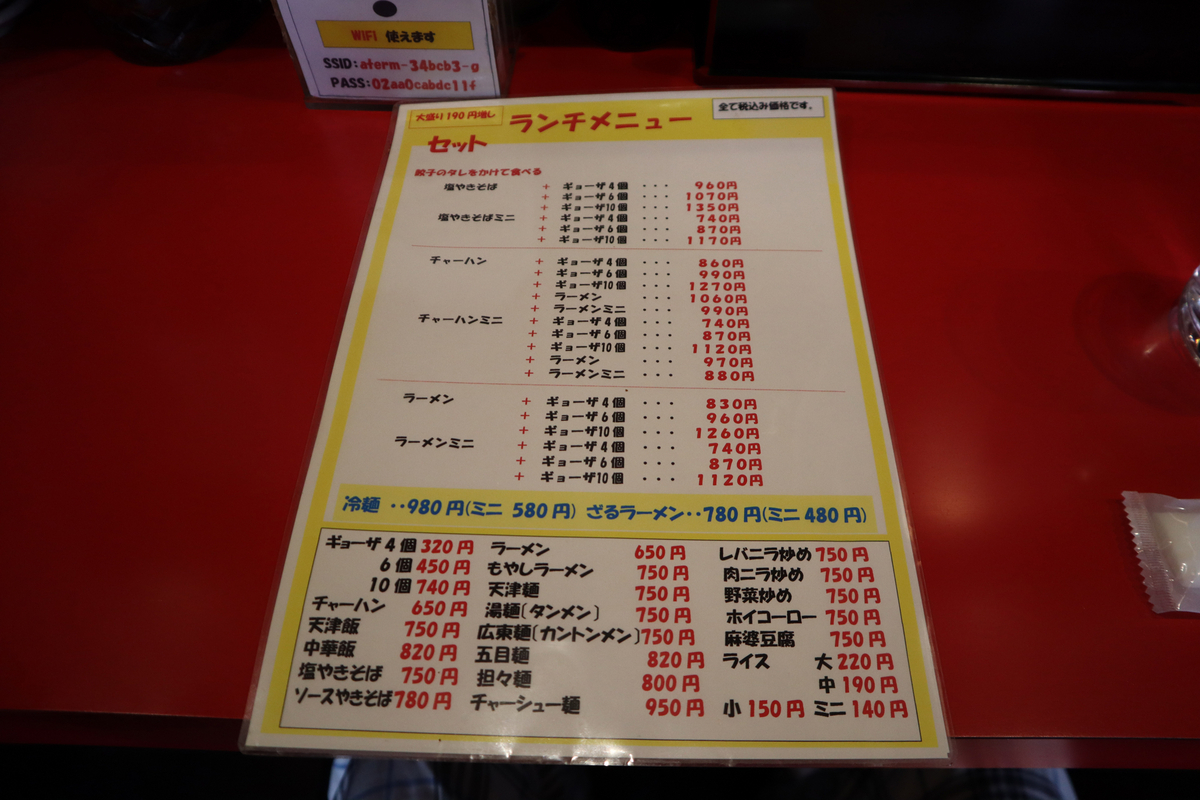 WIFI 使えます
SSID:aterm-34bcb3-g
PASS:02aa0cabdc11f
大盛り190円増し ランチメニュー 全て税込み価格です。
セット
餃子のタレをかけて食べる
塩やきそば + ギョーザ4個 ・・・ 960円
+ ギョーザ6個 ・・・ 1070円
+ ギョーザ10個 ・・・ 1350円
塩やきそばミニ + ギョーザ4個 ・・・ 740円
+ ギョーザ6個 ・・・ 870円
+ ギョーザ10個 ・・・ 1170円
チャーハン + ギョーザ4個 ・・・ 860円
+ ギョーザ6個 ・・・ 990円
+ ギョーザ10個 ・・・ 1270円
+ ラーメン ・・・ 1060円
+ ラーメンミニ ・・・ 990円
チャーハンミニ + ギョーザ4個 ・・・ 740円
+ ギョーザ6個 ・・・ 870円
+ ギョーザ10個 ・・・ 1120円
+ ラーメン ・・・ 970円
+ ラーメンミニ ・・・ 880円
ラーメン + ギョーザ4個 ・・・ 830円
+ ギョーザ6個 ・・・ 960円
+ ギョーザ10個 ・・・ 1260円
ラーメンミニ + ギョーザ4個 ・・・ 740円
+ ギョーザ6個 ・・・ 870円
+ ギョーザ10個 ・・・ 1120円
冷麺 ‥980円(ミニ 580円) ざるラーメン‥780円(ミニ480円)
ギョーザ4個 320円 ラーメン 650円 レバニラ炒め 750円
6個 450円 もやしラーメン 750円 肉ニラ炒め 750円
10個 740円 天津麺 750円 野菜炒め 750円
チャーハン 650円 湯麺(タンメン) 750円 ホイコーロー 750円
天津飯 750円 広東麺(カントンメン) 750円 麻婆豆腐 750円
中華飯 820円 五目麺 820円 ライス 大 220円
塩やきそば 750円 担々麺 800円 中 190円
ソースやきそば 780円 チャーシュー麺 950円 小 150円 ミニ 140円